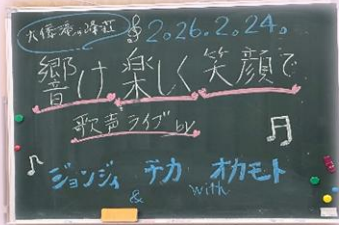 2.26.2.24.
響け楽しく笑顔で
歌声ライブ by
ジョンジィ & チカ with オカモト